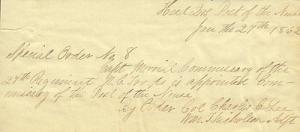 Head Qrs Post of the Neuse
Jan the 27th 1862
Special Order No 8
Capt Morris Commissary of the
27th Regiment N.C. Troops is appointed Com-
missary of the Post of the Neuse
By Order Col Charles C Lee
Wm Nicholson Adjt